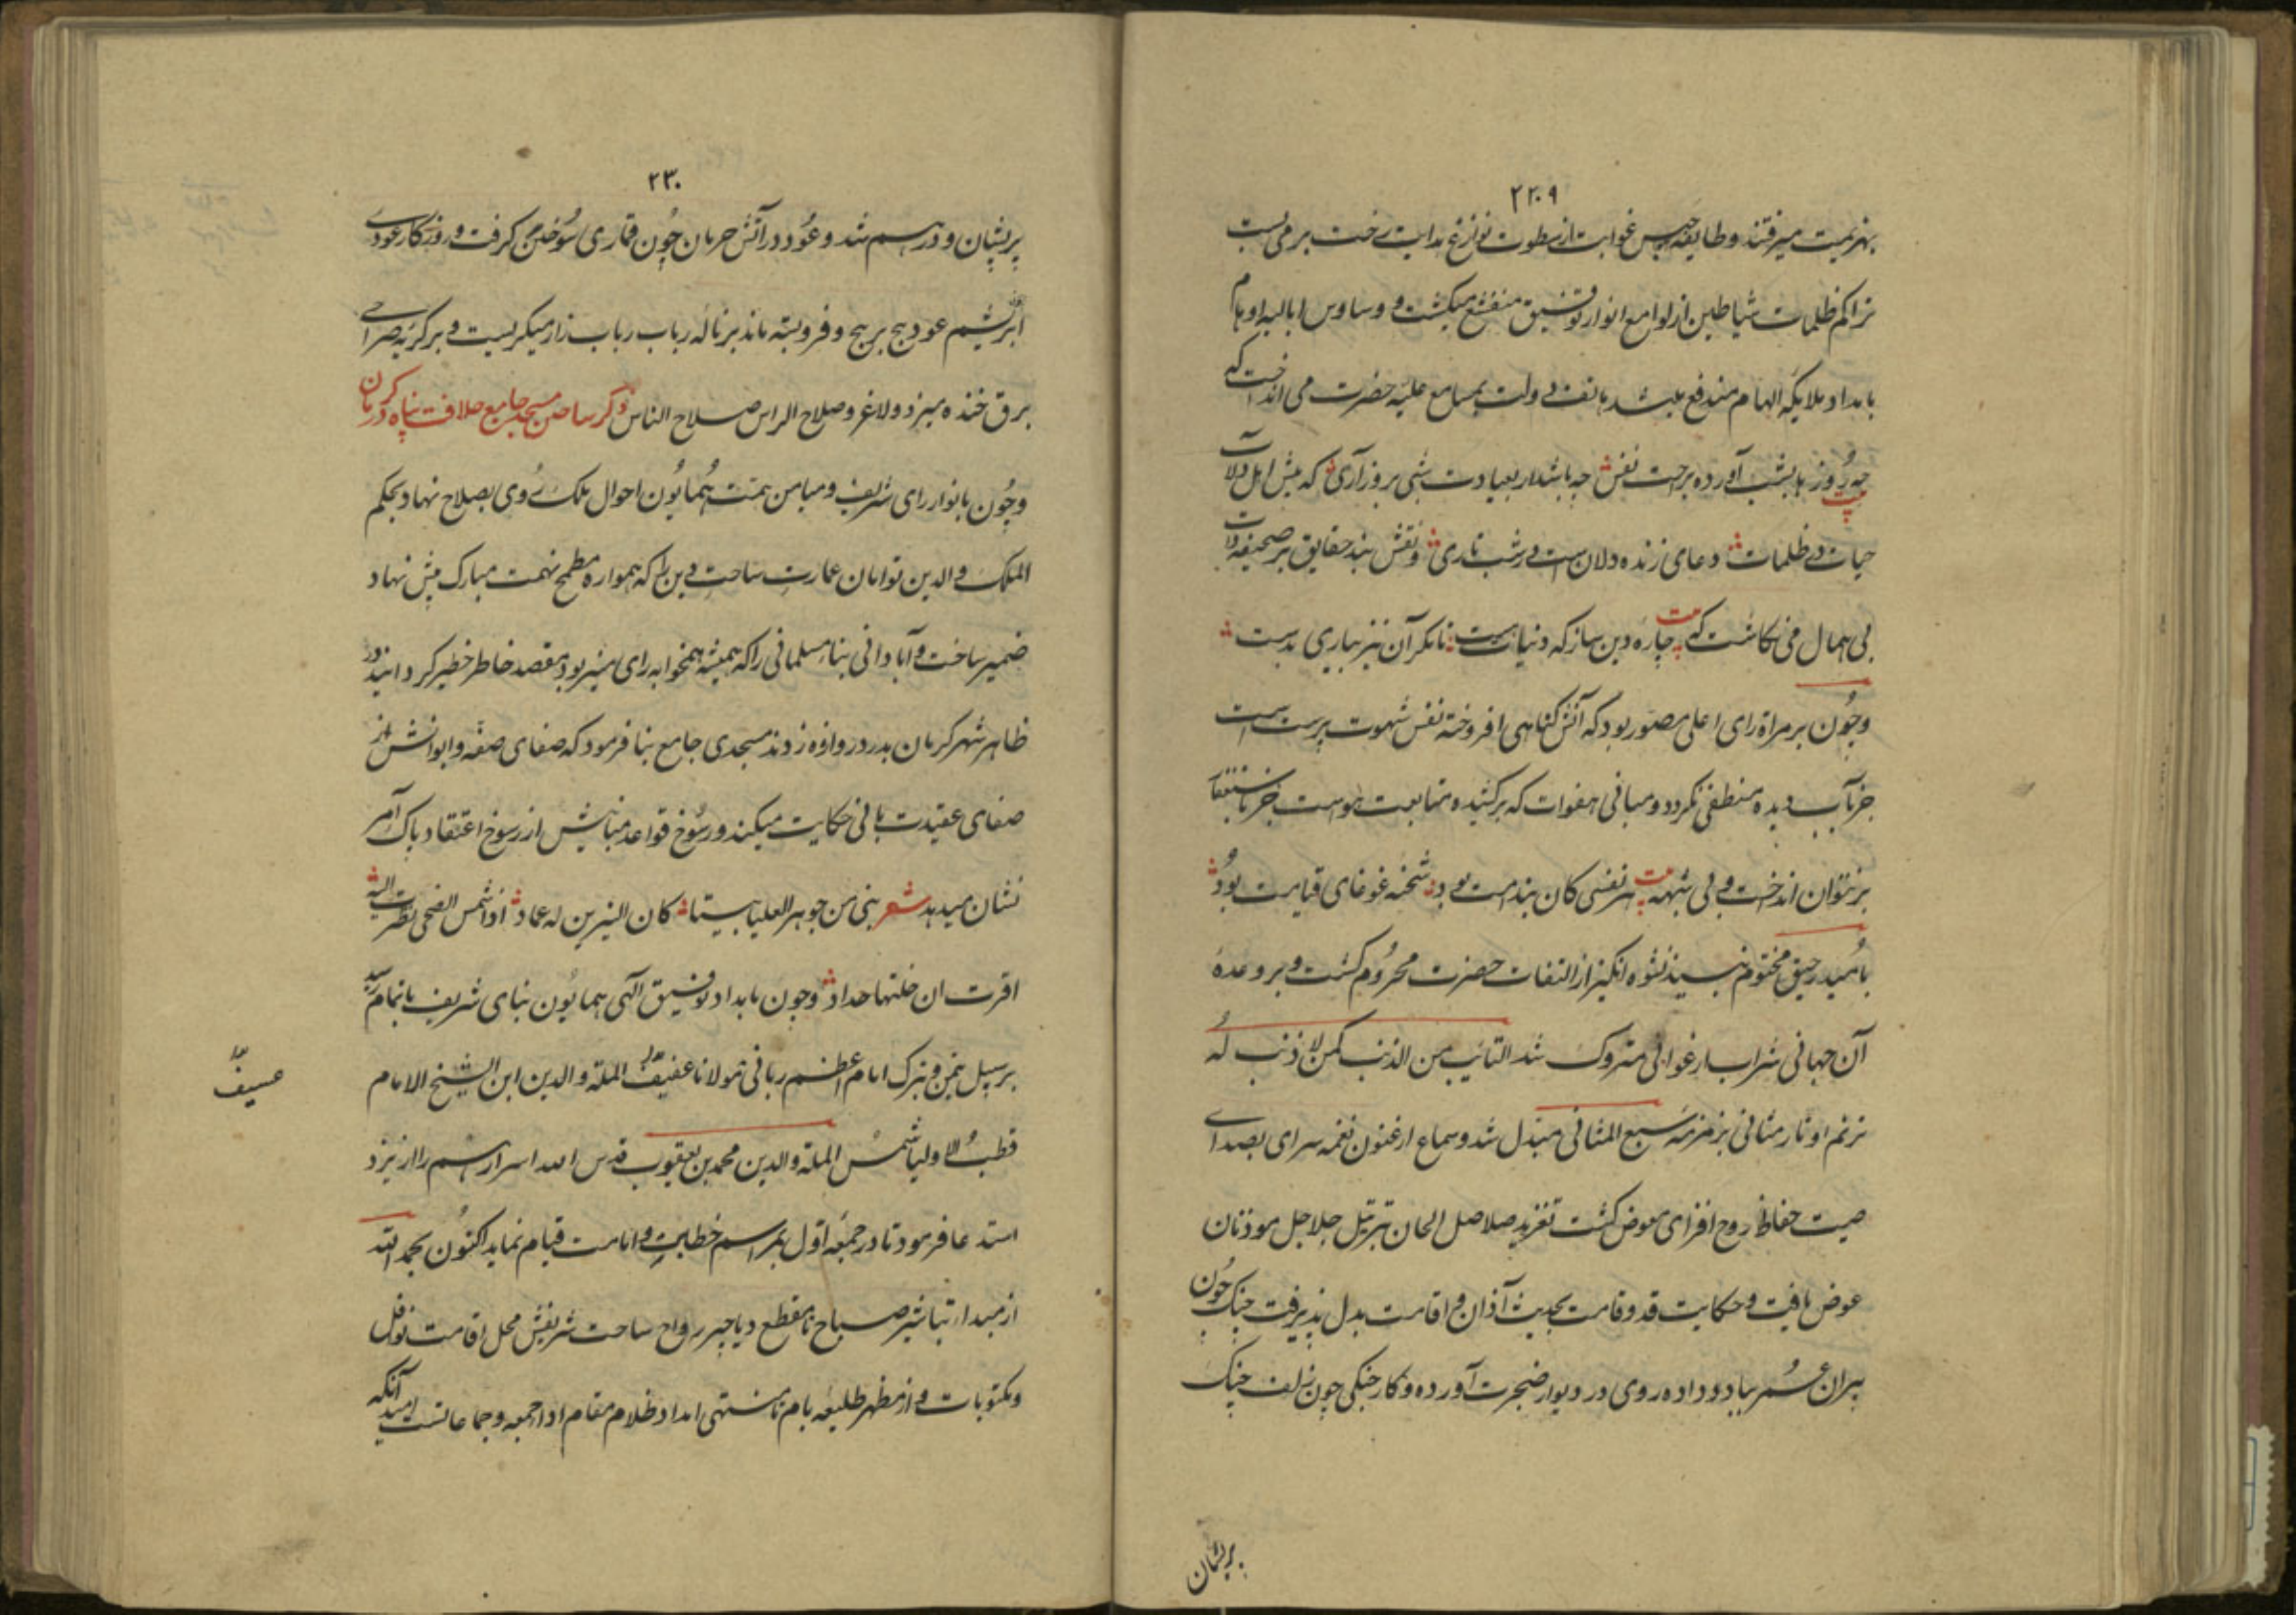 ۲۲۰۹
بهزیمت میرفتند و طایفه غوایت از سطوت نوازغ هدایت رخت بر می بست
تراکم ظلمات شیاطین از لوامع انوار توفیق منقشع میکشت و وساوس ابالیه اوهام
بامداد ملایکه الهام مندفع می شد هاتف دولت بمسامع علیه حضرت می انداخت که
بیت
چه روزها بشب آورده براحت نفس چه باشد ار بعبادت شبی بروز آری که پیش اهل دل آب
حیات در ظلمات دعای زنده دلان است در شب تاری و نقش بند حقایق بر صحیفه ذات
بی همال می نکاشت که بیت چاره دین ساز که دنیات هست تا مکر آن نیز بیاری بدست
و چون بر مرآة رای اعلی مصور بود که آتش کناهی افروخته نفس شهوت پرست است
جز بآب دیده منطفی نکردد و مبانی هفوات که برکشیده متابعت هواست جز باستغفار
بر نتوان انداخت و بی شبهه بیت هر نفسی کان بندامت بود شحنه غوغای قیامت بود
بامید رحیق مختوم نبیذ نشوه انکیز از التفات حضرت محروم کشت و بر وعده
آن جهانی شراب ارغوانی متروک شد التائب من الذنب کمن لا ذنب له
ترنم اوتار مثانی بزمزمه سبع المثانی مبدل شد و سماع ارغنون نغمه سرای بصدای
صیت حفاظ روح افزای معوض کشت تغرید صلاصل الحان بترتیل جلاجل موذنان
عوض یافت و حکایت قد و قامت بحدیث آذان و اقامت بدل پذیرفت چنک چون
پیران عمر بباد داده روی در دیوار ضجرت آورده و کار چنکی چون زلف چنک
پریشان
۲۳۰
پریشان و درهم شد و عود در آتش حرمان چون قماری سوختن کرفت و روزکار عودی
ابریشم عود هیچ بر هیچ و فروبسته ماند بر ناله رباب رباب زار میکریست و بر کریه صراحی
برق خنده میزد و لاغرو صلاح الراس صلاح الناس ذکر ساختن مسجد جامع خلافت پناه در کرمان
و چون بانوار رای شریف و میامن همت همایون احوال ملک روی بصلاح نهاد و بحکم
الملک و الدین توامان عمارت ساحت دین را که همواره مطمح نهمت مبارک پیش نهاد
ضمیر ساخت و آبادانی بناء مسلمانی را که همیشه همخوابه رای منیر بود مقصد خاطر خطیر کردانید در
ظاهر شهر کرمان بدر دروازه زرند مسجدی جامع بنا فرمود که صفای صفه و ایوانش از
صفای عقیدت بانی حکایت میکند و رسوخ قواعد مبانیش از رسوخ اعتقاد پاک آمر
نشان میدهد شعر بنی من جوهر العلیا بیتا کان النیرین له عماد اذا شمس الضحی نظرت الیه
اقرت ان خلتها حداد و چون بامداد توفیق آلهی همایون بنای شریف باتمام رسید
بر سبیل تیمن و تبرک امام اعظم ربانی مولانا عفیف الملة و الدین ابن الشیخ الامام
عسیف
قطب الاولیا شمس الملة و الدین محمد بن یعقوب قدس الله اسرارهم را از یزد
استدعا فرمود تا در جمعه اول بمراسم خطابت و امامت قیام نماید اکنون بحمد الله
از مبدا تباشیر صباح تا مقطع دیاجیر رواح ساحت شریفش محل اقامت نوافل
و مکتوبات و از مظهر طلیعه بام تا منتهی امداد ظلام مقام ادا جمعه و جماعاتست امید آنکه